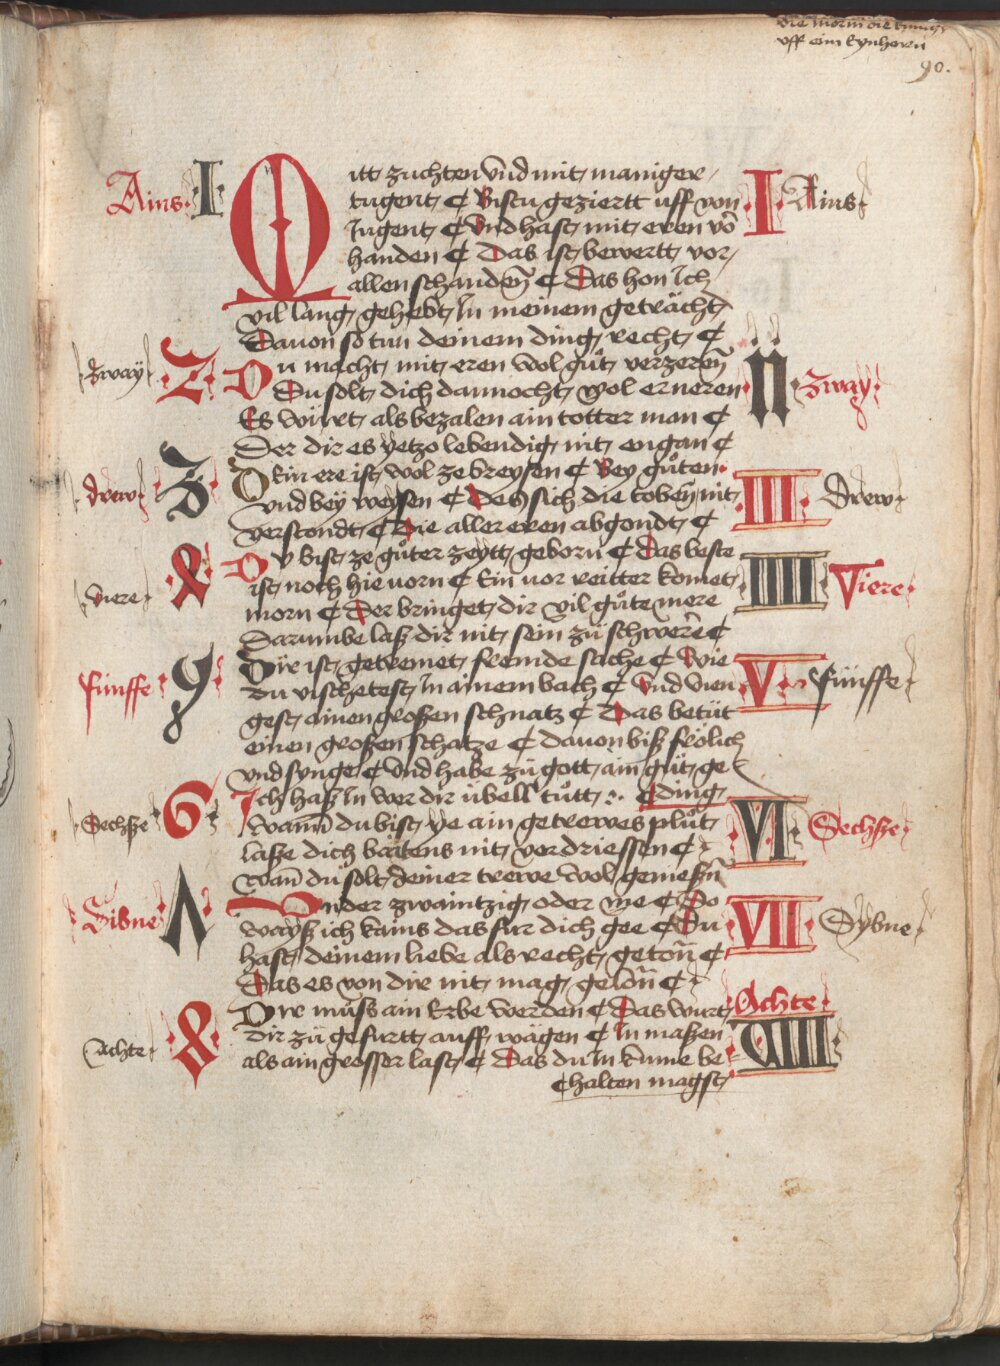 uff eim kynhorn
90.
Ains I Mitt zuchten vnd mit maniger I Ains
tugent ¢ Bistu geziertt uff von
Jugent ¢ Vnd hast mit eren vo᷑
handen ¢ Das ist bewertt vor
allen schanden̄ ¢ Das hon Ich
vil lang gehebt In meinem geträcht
Dauon so tun deinem ding recht ¢
Zway 2 Du macht mit eren wol gůt verzeren̄ II Zway
Du solt dich dannocht wol erneren
Es wirt als bezalen ain totter man ¢
Der dir es yetzo lebendig nit engan ¢
drew 3 Dein ere ist wol ze breysen ¢ Bey gůten III Drew
vnd beÿ weysen ¢ Des sich die toben nit
verstondt ¢ Die aller eren abgondt ¢
viere 4 Dv bist ze gůter zeytt geborn ¢ Das beste IIII Viere
ist noch hie uorn ¢ Ein vor reitter komet
morn ¢ Der bringet dir vil gůte mere
Darumbe laß dir nit sein zů schwere ¢
fünffe 5 Dir ist getremet fremde sache ¢ Wie V Fünffe
du vischetest In ainem bach ¢ Vnd vien
gest ainen großen schnatz ¢ Das betüt
einen großen schatze ¢ dauon biß frölich
vnd singe ¢ Vnd habe zů gott ain gůt ge
¢ ding
Sechsze 6 Ich haß In wer dir übell tůtt VI Sechsze
Wann̄ du bist ye ain getrewes plůt
laße dich baitens nit verdriessen ¢
Wan̄ du solt deiner trewe wol genieß̄n
Sibne 7 Under zwaintzig oder me ¢ So VII Sybne
wayß ich kains das für dich gee ¢ Du
hast deinem liebe als recht geton̄ ¢
Das es von dir nit mag gelon̄ ¢
Achte 8 Dir můß ain Erbe werden ¢ Das wurt Achte VIII
dir zů gefurtt auff wägen ¢ In maßen
als ain grosser last ¢ Das du In kume be
¢ halten magst